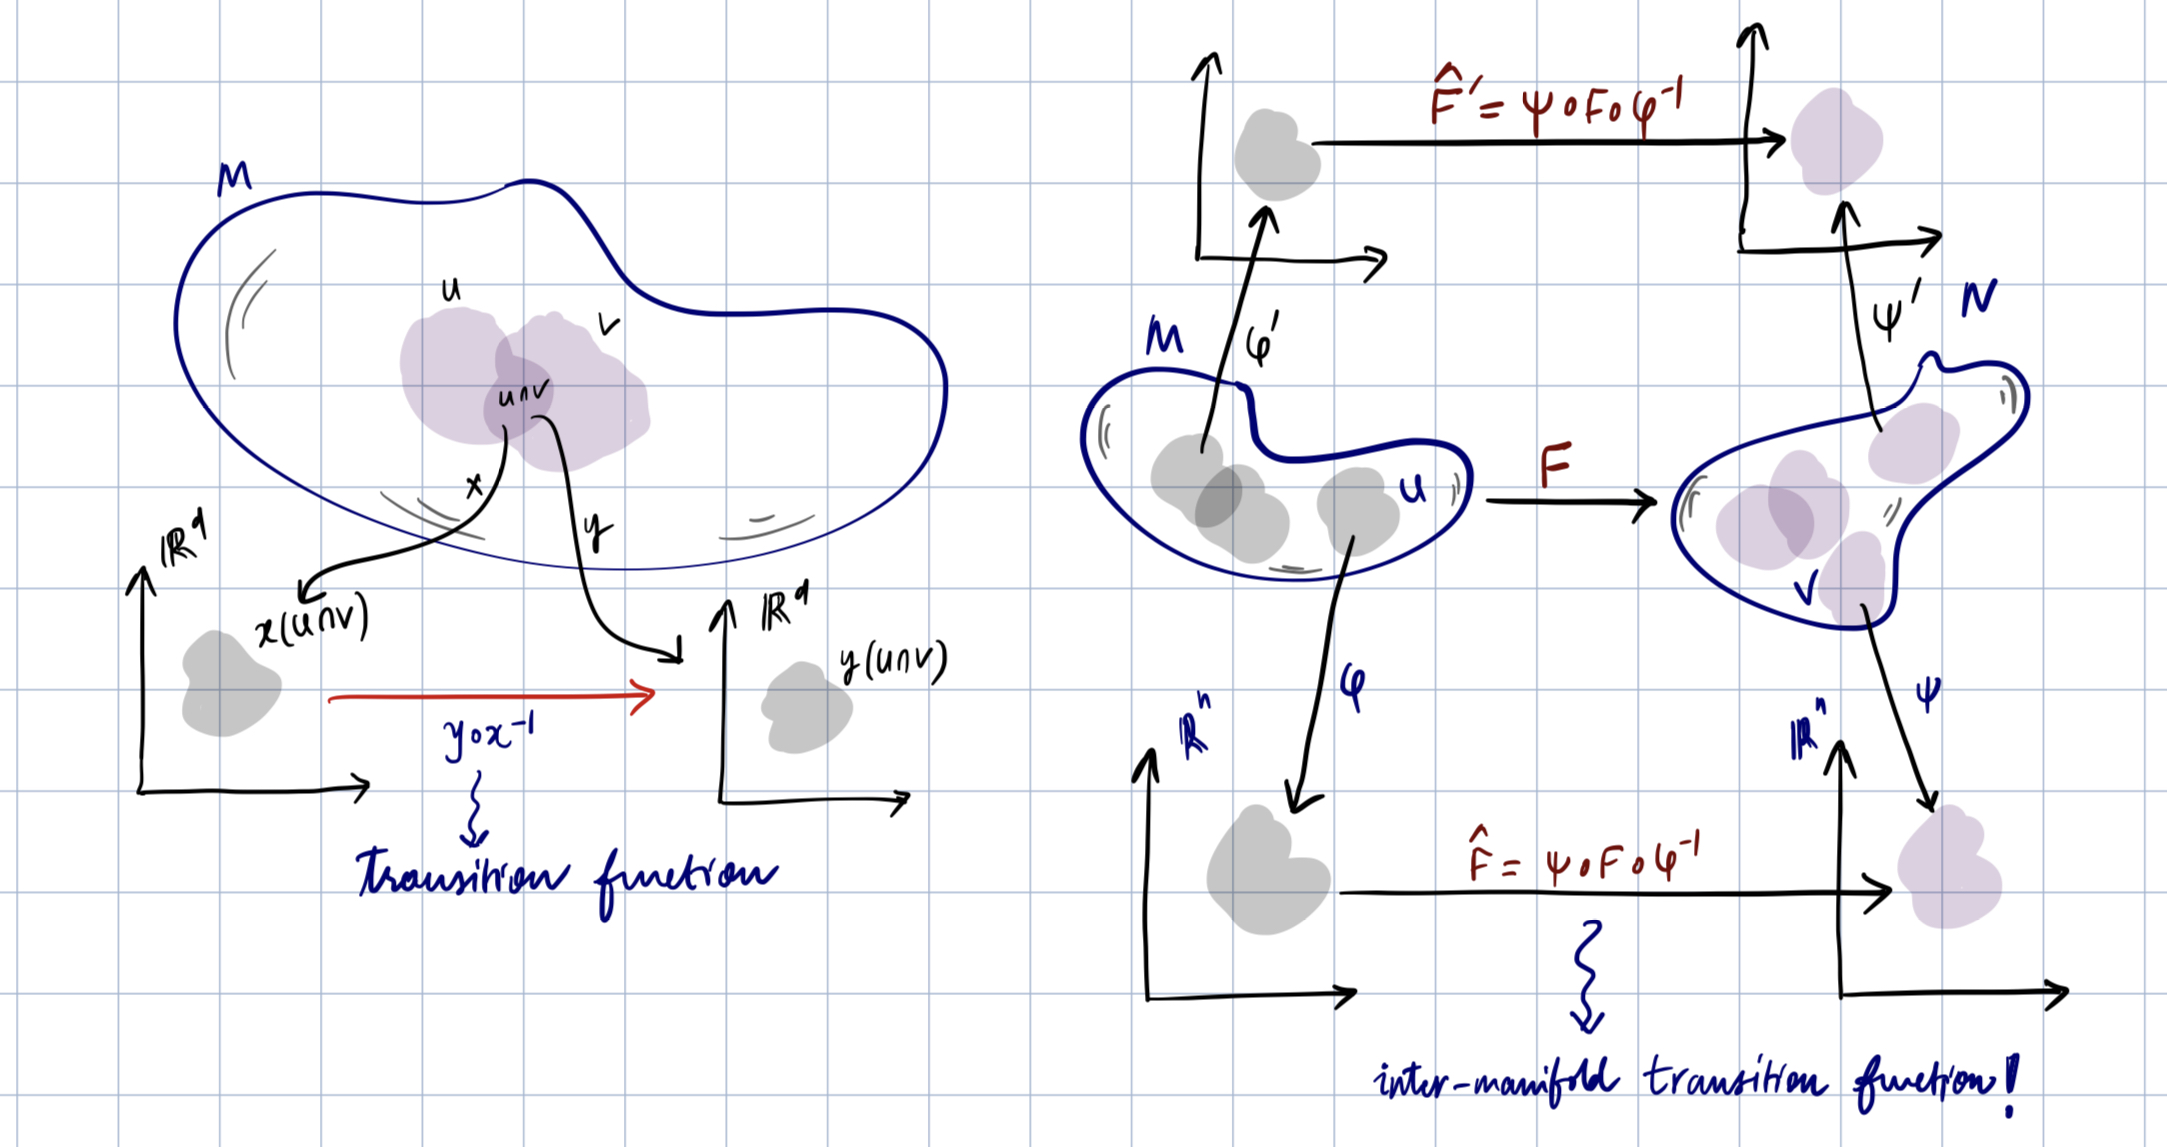 M
U
V
U∩V
x
y
ℝᵈ
x(U∩V)
ℝᵈ
y(U∩V)
y∘x⁻¹
Transition function
F̂′ = ψ∘F∘φ⁻¹
φ′
ψ′
M
N
U
F
V
φ
ψ
ℝⁿ
ℝⁿ
F̂ = ψ∘F∘φ⁻¹
inter-manifold transition function!